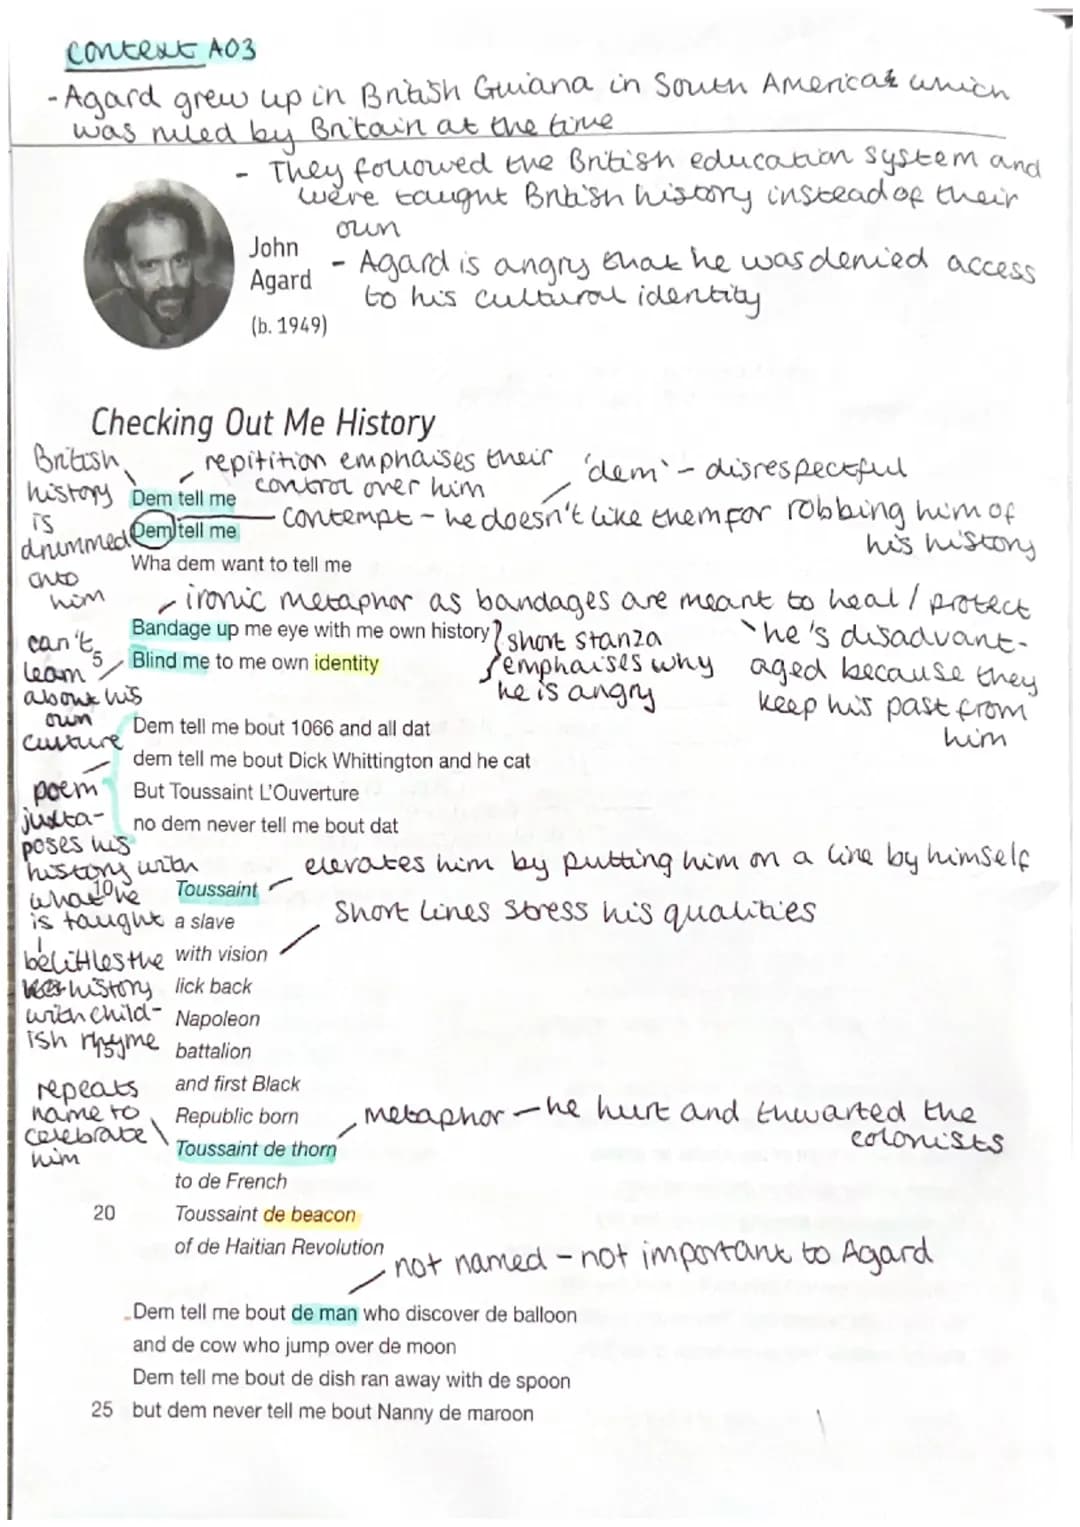 Context AO3
- Agard grew up in British Guiana in South America which
was ruled by Britain at the time
- They followed the British education system and
were taught British history instead of their
own
John
Agard
(b. 1949)
- Agard is angry that he was denied access
to his cultural identity
Checking Out Me History
British
history
is
drummed
into
him
repitition emphaises their
control over him
'dem' - disrespectful
Dem tell me
Dem tell me
contempt - he doesn't like them for robbing him of
his history
Wha dem want to tell me
ironic metaphor as bandages are meant to heal / protect
he's disadvant-
aged because they
keep his past from
him
Bandage up me eye with me own history
5 Blind me to me own identity
short stanza
emphaises why
he is angry
can't
learn
about his
own
culture
Dem tell me bout 1066 and all dat
dem tell me bout Dick Whittington and he cat
But Toussaint L'Ouverture
no dem never tell me bout dat
poem
juxta-
poses his
history with
what he
is taught
belittles the
history
with child-
ish rhyme
elevates him by putting him on a line by himself
10 Toussaint
a slave
Short lines stress his qualities
with vision
lick back
Napoleon
15 battalion
and first Black
Republic born
repeats
name to
celebrate
him
metaphor - he hurt and thwarted the
colonists
Toussaint de thorn
to de French
20 Toussaint de beacon
of de Haitian Revolution
not named - not important to Agard
Dem tell me bout de man who discover de balloon
and de cow who jump over de moon
Dem tell me bout de dish ran away with de spoon
25 but dem never tell me bout Nanny de maroon